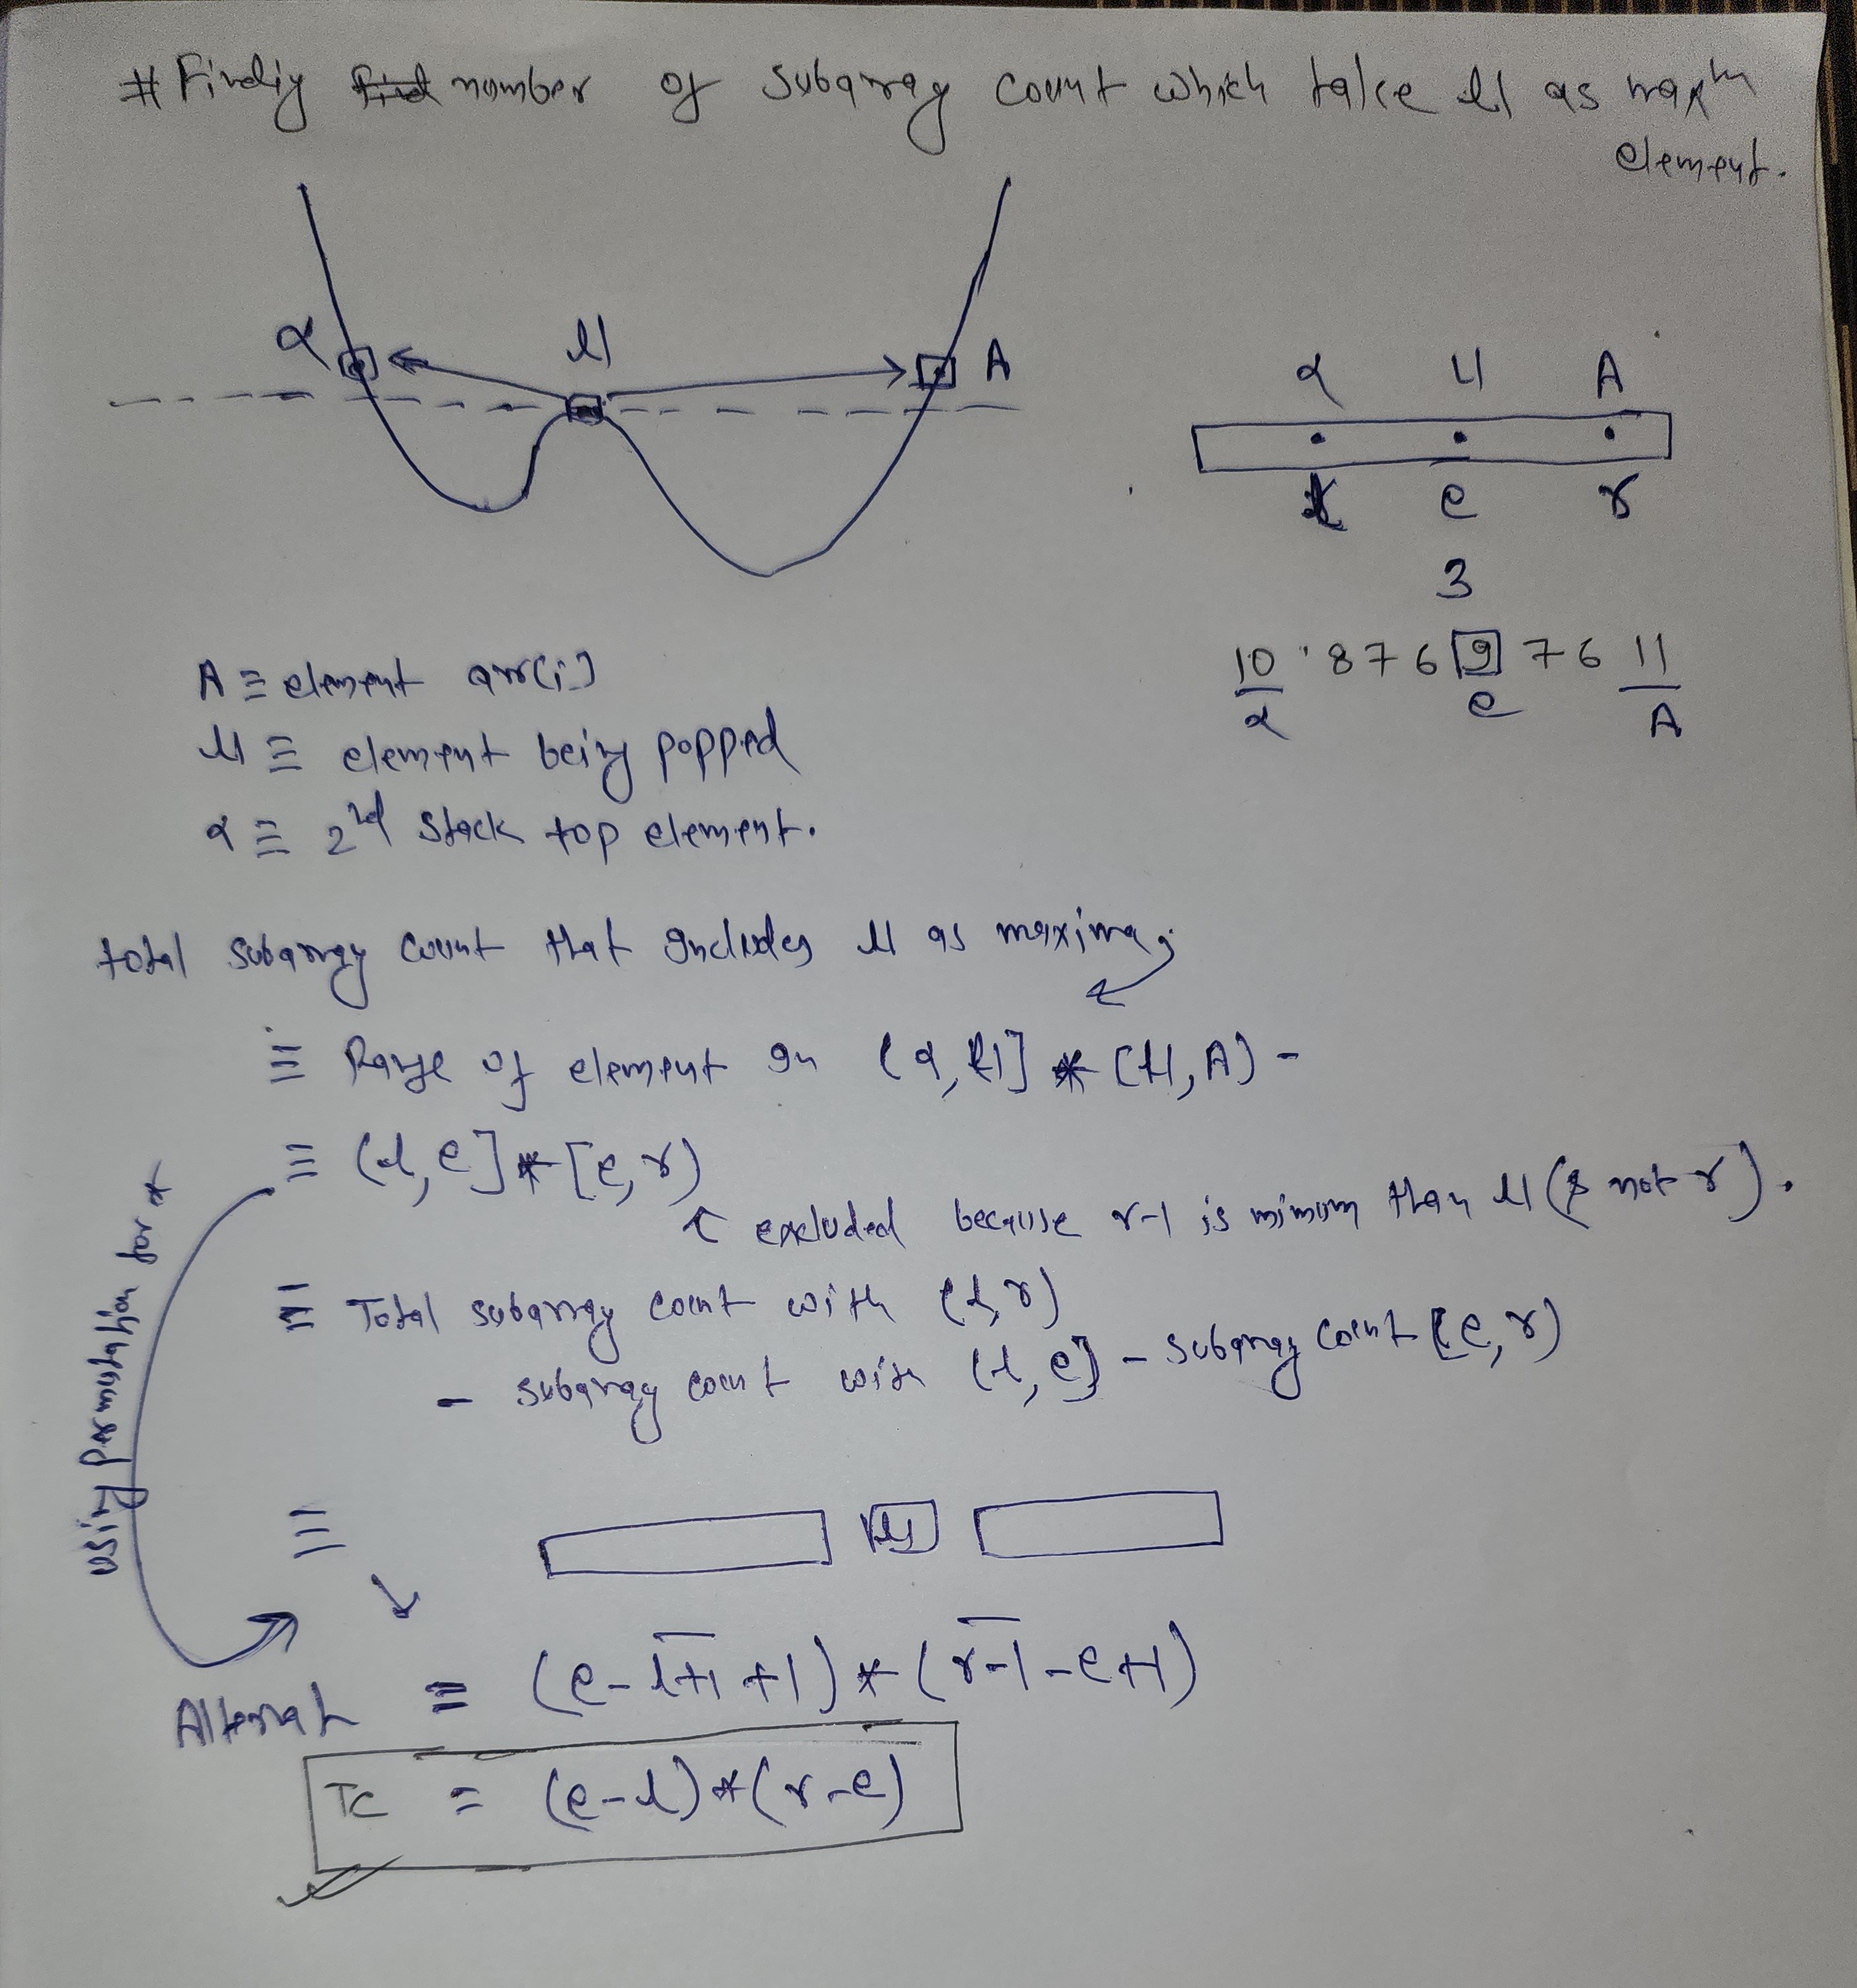 # Findiy number of subarray count which take μ as maxm
element.
α μ A
α μ A
e r
3
10 8 7 6 9 7 6 11
α e A
A ≡ element arr[i]
μ ≡ element being popped
α ≡ 2nd stack top element.
total subarray count that includes μ as maxima;
≡ Range of element in (α, μ] * [μ, A) -
≡ (l, e] * [e, r)
excluded because r-1 is mimum than μ ( not r).
≡ Total subarray count with (l, r)
- subarray count with (l, e] - subarray count [e, r)
using permutation for *
≡ μ
Alternat ≡ (e - l+1 + 1) * (r-1 - e+1)
TC = (e-l) * (r-e)